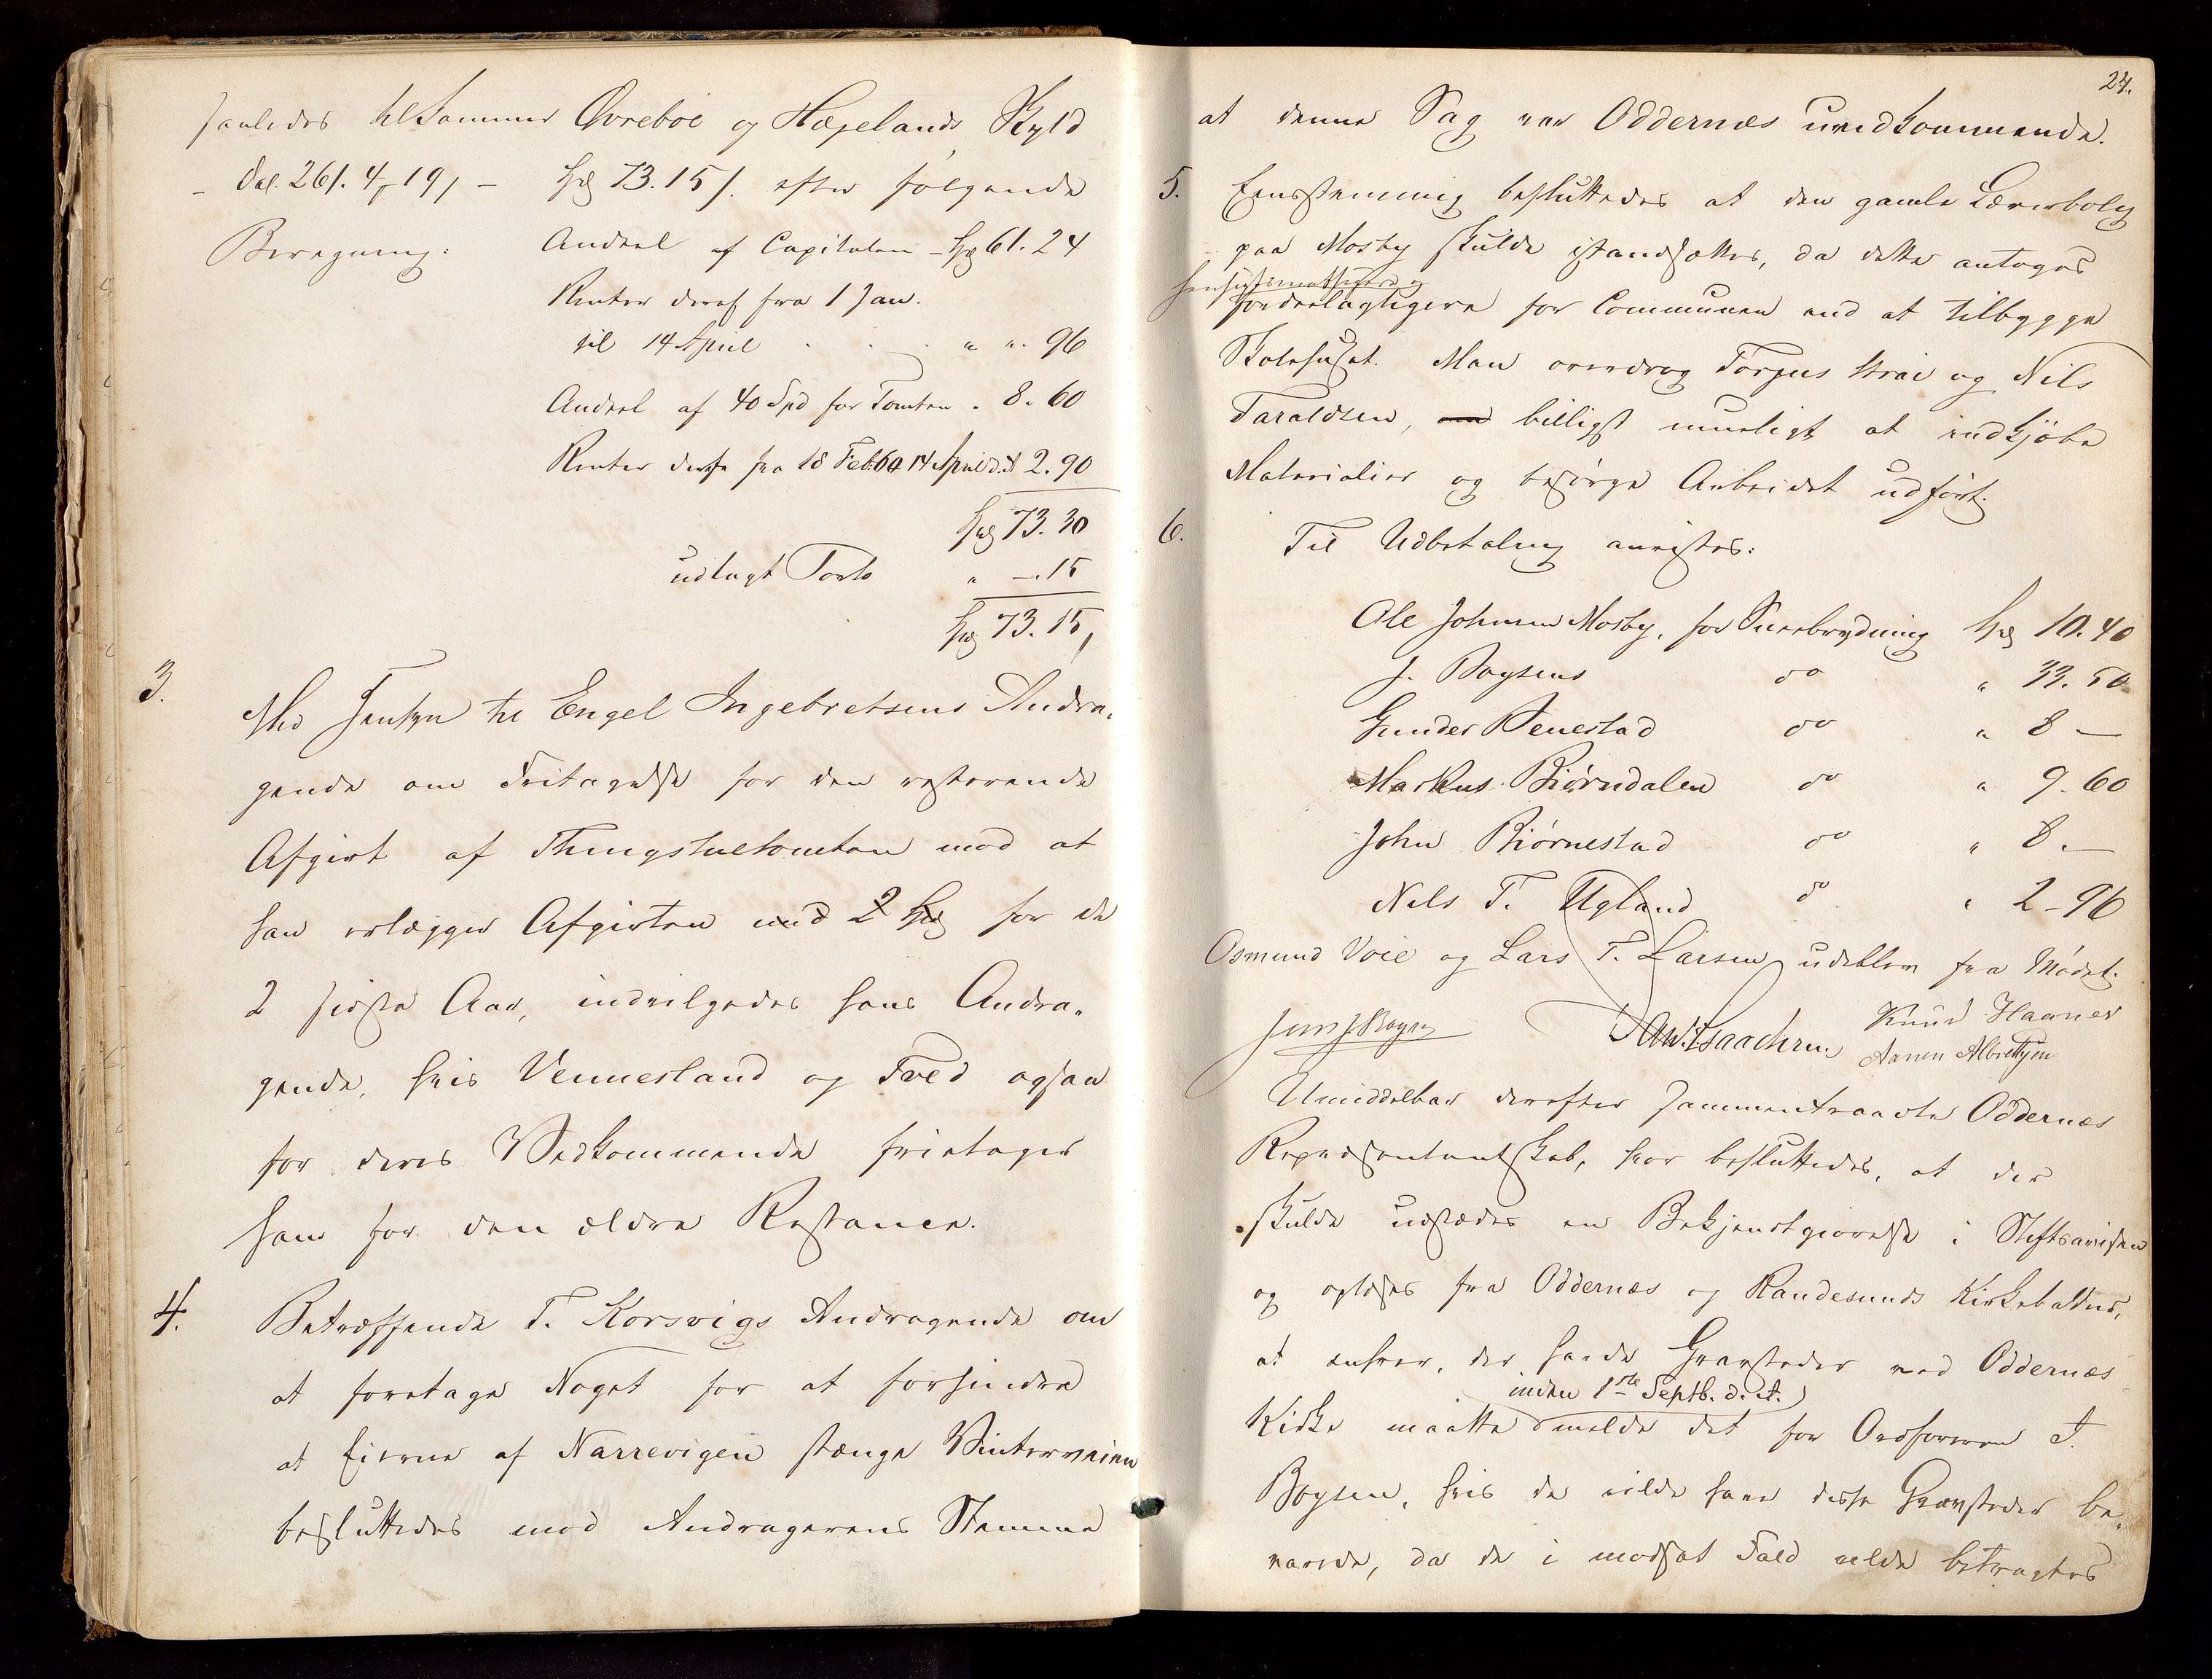 saaledes tilkommer Øvrebøe og Hægelands Skyld
– Dal. 261. 4, 19, – Spd 73. 15 ſ. efter følgende
Beregning: Andeel af Capitalen – Spd 61. 24
Renter deraf fra 1 Jan.
til 14 April . . . " ". 96
Andeel af 40 Spd for Tomten . 8. 60
Renter deraf fra 18 Feb. 60 14 April d. A 2. 90
Spd 73. 30
udlagt Porto " –. 15
Spd 73. 15,
3.
Med Hensyn til Engel Ingebretsens Andra-
gende om Fritagelse for den resterende
Afgivt af Thingstuetomten mod at
han erlægger Afgivten med 2 Spd for de
2 sidste Aar, indvilgedes hans Andra-
gende, hvis Vennesland og Tved ogsaa
for deres Vedkommende fritager
ham for den ældre Restance.
4. Betræffende T. Korsvigs Andragende om
at foretage Noget for at forhindre
at Eierne af Narrevigen stænge Vinterveien
besluttedes mod Andragerens Stemme
24.
at denne Sag var Oddernæs uvedkommende.
5. Eensstemmig besluttedes at den gamle Lærerbolig
paa Mosby skulde istandsættes, da dette antoges
hensigtsmæssigere og
fordeelagtigere for Communen end at tilbygge
Skolehuset. Man overdrog Torjus Strai og Nils
Taraldsen, billigst mueligt at indkjøbe
Materialier og besørge Arbeidet udført.
6. Til Udbetaling anvistes:
Ole Johnsen Mosby, for Sneebrydning Spd 10. 40
J. Boysens do " 33. 50
Gunder Senestad do " 8 –
Markus Biørndalen do " 9. 60
John Biørnestad do " 8. –
Nils T. Ugland do " 2 – 96
Osmund Voie og Lars T. Larsen udeblev fra Mødet.
Jens J Boysen Dan. Isaachsen. Knud Haanes
Aanen Albretsen
Umiddelbar derefter sammentraadte Oddernæs
Repræsentantskab, hvor besluttedes, at der
skulde udstædes en Bekjendtgiørelse i Stiftsavisen
og oplæses fra Oddernæs og Randesunds Kirkebakker,
at enhver, der havde Gravsteder ved Oddernæs
inden 1ste Septb. d. A.
Kirke maatte melde det for Ordføreren J.
Boysen, hvis de vilde have disse Gravsteder be-
varede, da de i modsat Fald vilde betragtes